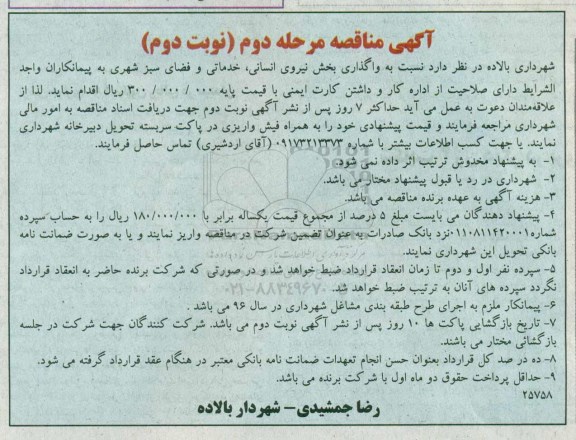 آگهی مناقصه مرحله دوم (نوبت دوم)
شهرداری بالاده در نظر دارد نسبت به واگذاری بخش نیروی انسانی، خدماتی و فضای سبز شهری به پیمانکاران واجد
الشرایط دارای صلاحیت از اداره کار و داشتن کارت ایمنی با قیمت پایه ۰۰۰ / ۰۰۰ / ۳۰۰ ریال اقدام نماید. لذا از
علاقه‌مندان دعوت به عمل می آید حداکثر ۷ روز پس از نشر آگهی نوبت دوم جهت دریافت اسناد مناقصه به امور مالی
شهرداری مراجعه فرمایند و قیمت پیشنهادی خود را به همراه فیش واریزی در پاکت سربسته تحویل دبیرخانه شهرداری
نمایند. یا جهت کسب اطلاعات بیشتر با شماره ۰۹۱۷۳۲۱۳۳۷۳ (آقای اردشیری) تماس حاصل فرمایند.
۱- به پیشنهاد مخدوش ترتیب اثر داده نمی شود.
۲- شهرداری در رد یا قبول پیشنهاد مختار می باشد.
۳- هزینه آگهی به عهده برنده مناقصه می باشد.
۴- پیشنهاد دهندگان می بایست مبلغ ۵ درصد از مجموع قیمت یکساله برابر با ۱۸۰/۰۰۰/۰۰۰ ریال را به حساب سپرده
شماره۰۱۱۰۸۱۱۱۴۲۰۰۰۱ نزد بانک صادرات به عنوان تضمین شرکت در مناقصه واریز نمایند و یا به صورت ضمانت نامه
بانکی تحویل این شهرداری نمایند.
۵- سپرده نفر اول و دوم تا زمان انعقاد قرارداد ضبط خواهد شد و در صورتی که شرکت برنده حاضر به انعقاد قرارداد
نگردد سپرده های آنان به ترتیب ضبط خواهد شد.
۰۲۱-۸۸۳۴۹۶۷۰
۶- پیمانکار ملزم به اجرای طرح طبقه بندی مشاغل شهرداری در سال ۹۶ می باشد .
۷- تاریخ بازگشایی پاکت ها ۱۰ روز پس از نشر آگهی نوبت دوم می باشد. شرکت کنندگان جهت شرکت در جلسه
بازگشائی مختار می باشند.
۸- ده در صد کل قرارداد بعنوان حسن انجام تعهدات ضمانت نامه بانکی معتبر در هنگام عقد قرارداد گرفته می شود.
۹- حداقل پرداخت حقوق دو ماه اول با شرکت برنده می باشد.
۲۵۷۵۸
رضا جمشیدی- شهردار بالاده